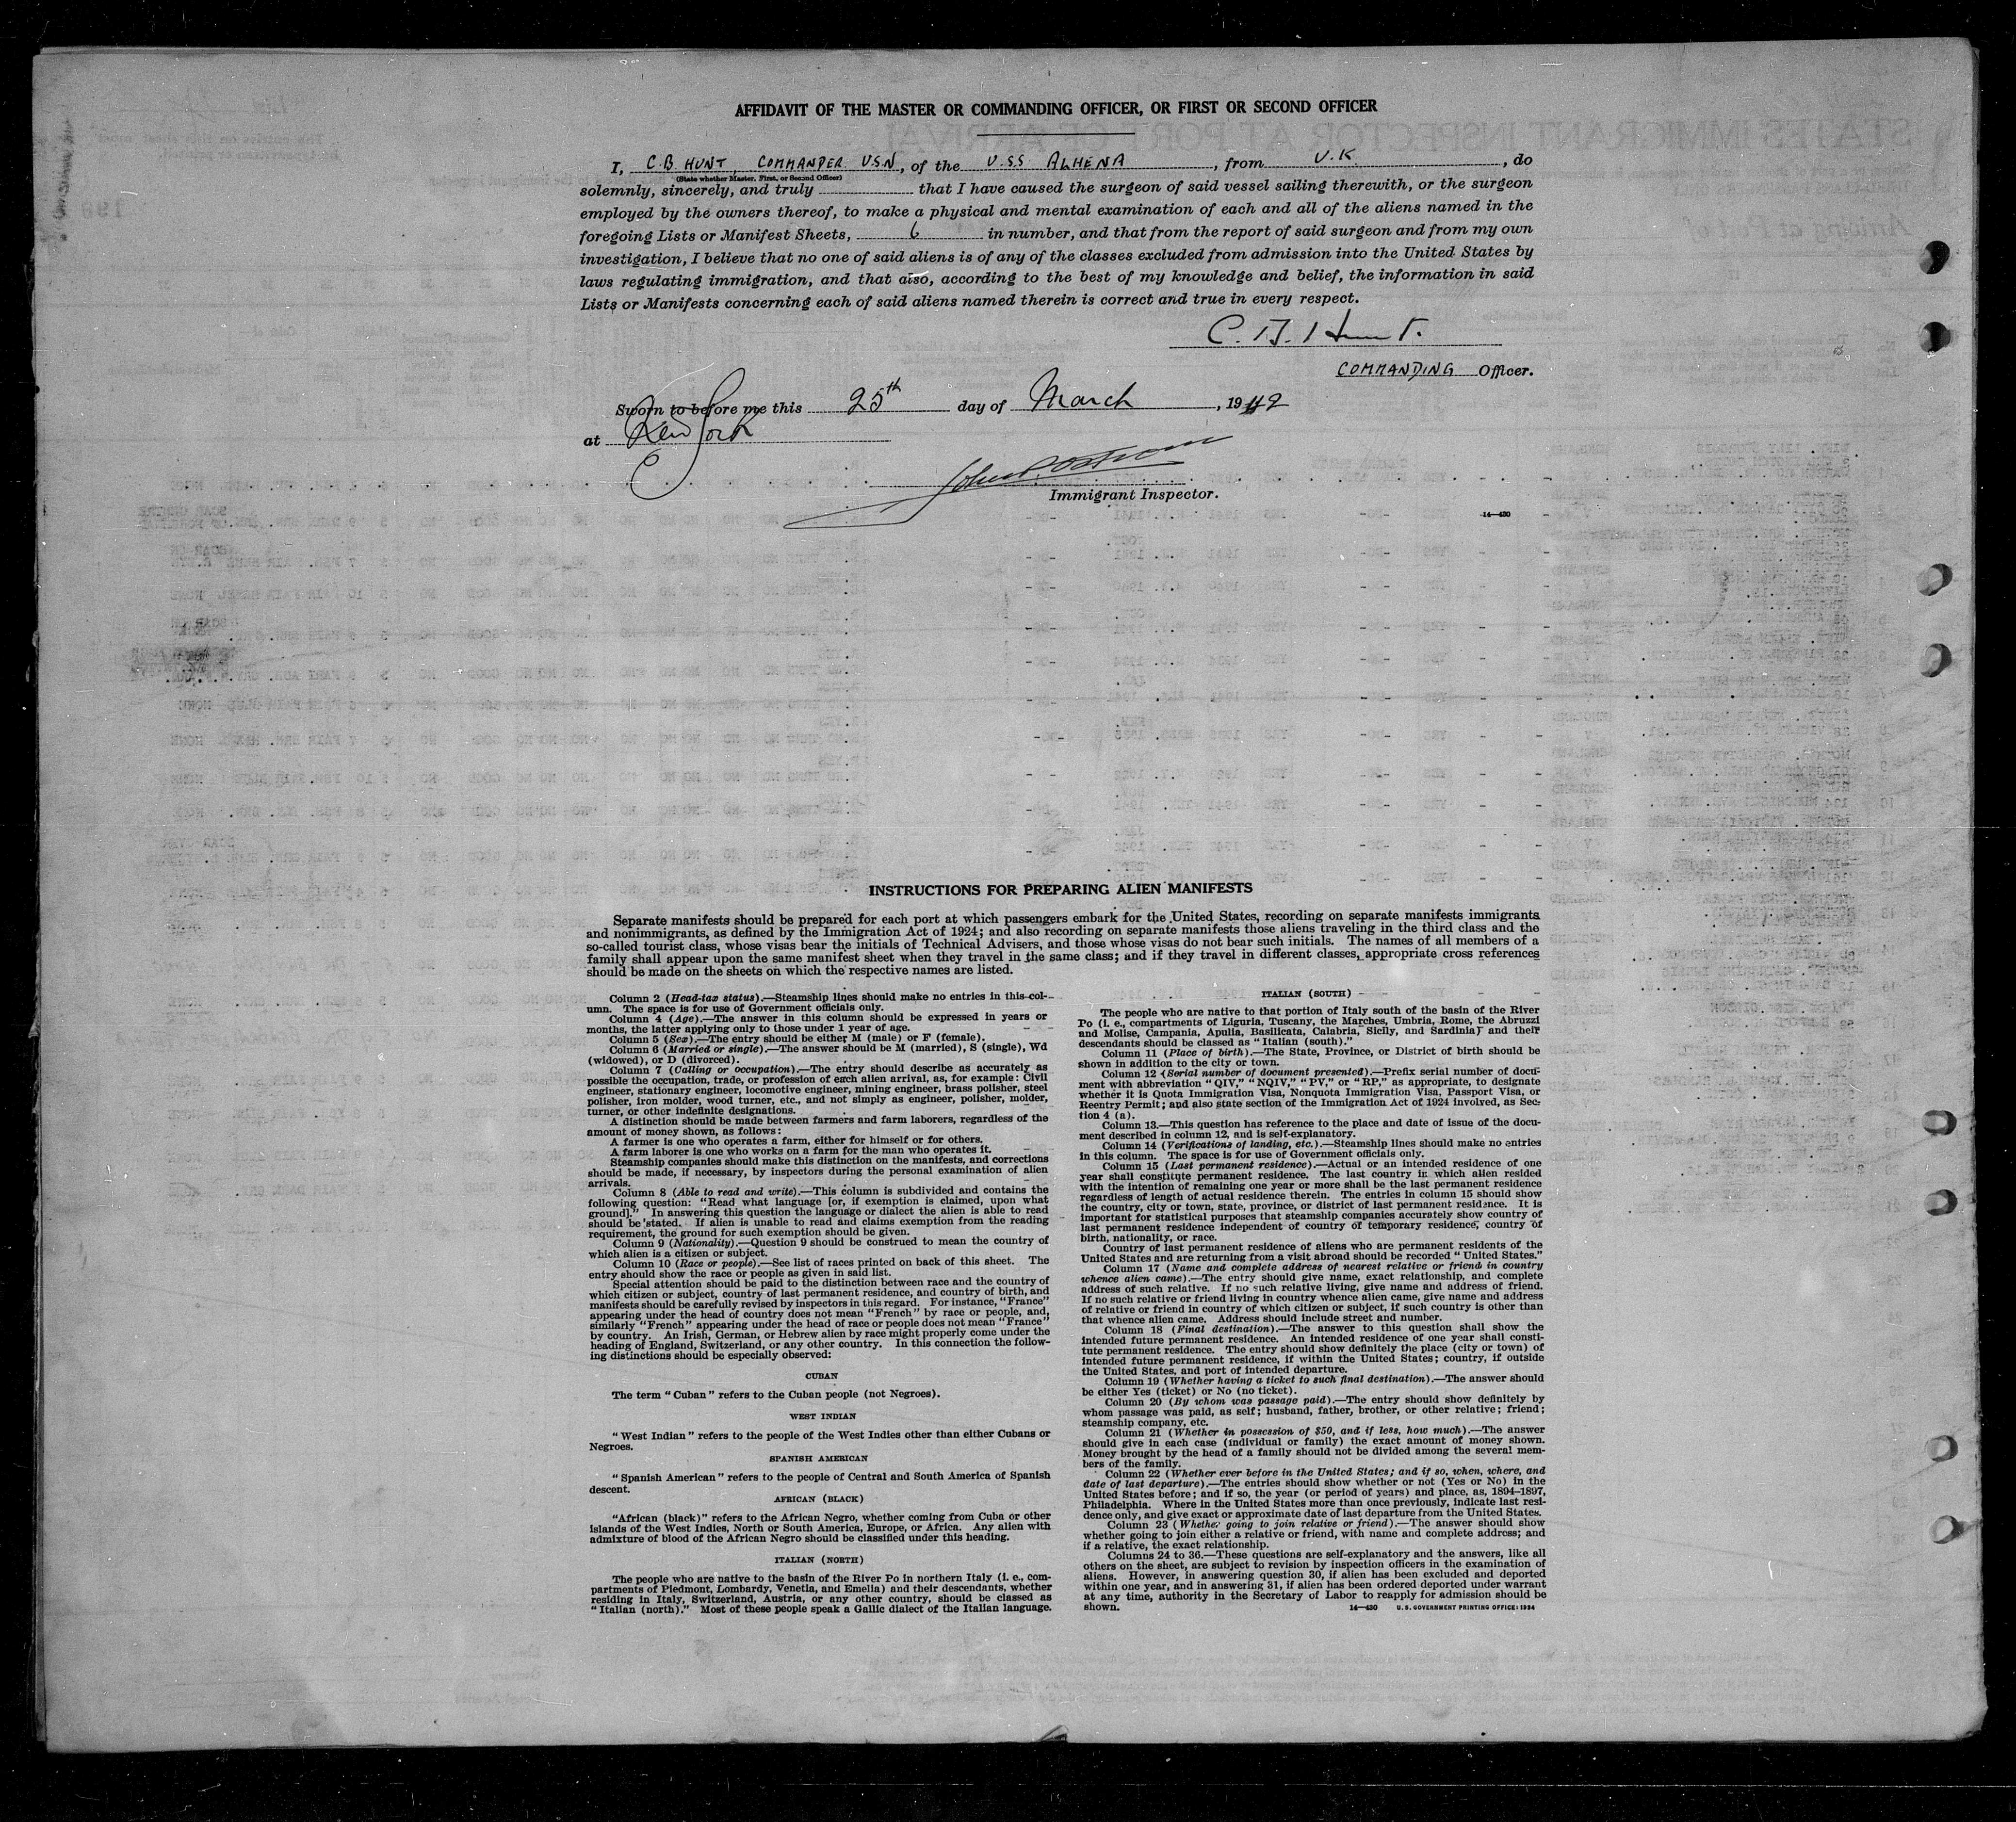 AFFIDAVIT OF THE MASTER OR COMMANDING OFFICER, OR FIRST OR SECOND OFFICER
I, C.B. HUNT, COMMANDER U.S.N., of the U.S.S. ALHENA, from U.K., do
(State whether Master, First, or Second Officer)
solemnly, sincerely, and truly that I have caused the surgeon of said vessel sailing therewith, or the surgeon
employed by the owners thereof, to make a physical and mental examination of each and all of the aliens named in the
foregoing Lists or Manifest Sheets, 6 in number, and that from the report of said surgeon and from my own
investigation, I believe that no one of said aliens is of any of the classes excluded from admission into the United States by
laws regulating immigration, and that also, according to the best of my knowledge and belief, the information in said
Lists or Manifests concerning each of said aliens named therein is correct and true in every respect.
C. B. Hunt.
COMMANDING Officer.
Sworn to before me this 25th day of March, 1942
at New York
Immigrant Inspector.
14—430
INSTRUCTIONS FOR PREPARING ALIEN MANIFESTS
Separate manifests should be prepared for each port at which passengers embark for the United States, recording on separate manifests immigrants
and nonimmigrants, as defined by the Immigration Act of 1924; and also recording on separate manifests those aliens traveling in the third class and the
so-called tourist class, whose visas bear the initials of Technical Advisers, and those whose visas do not bear such initials. The names of all members of a
family shall appear upon the same manifest sheet when they travel in the same class; and if they travel in different classes, appropriate cross references
should be made on the sheets on which the respective names are listed.
Column 2 (Head-tax status).—Steamship lines should make no entries in this col-
umn. The space is for use of Government officials only.
Column 4 (Age).—The answer in this column should be expressed in years or
months, the latter applying only to those under 1 year of age.
Column 5 (Sex).—The entry should be either M (male) or F (female).
Column 6 (Married or single).—The answer should be M (married), S (single), Wd
(widowed), or D (divorced).
Column 7 (Calling or occupation).—The entry should describe as accurately as
possible the occupation, trade, or profession of each alien arrival, as, for example: Civil
engineer, stationary engineer, locomotive engineer, mining engineer, brass polisher, steel
polisher, iron molder, wood turner, etc., and not simply as engineer, polisher, molder,
turner, or other indefinite designations.
A distinction should be made between farmers and farm laborers, regardless of the
amount of money shown, as follows:
A farmer is one who operates a farm, either for himself or for others.
A farm laborer is one who works on a farm for the man who operates it.
Steamship companies should make this distinction on the manifests, and corrections
should be made, if necessary, by inspectors during the personal examination of alien
arrivals.
Column 8 (Able to read and write).—This column is subdivided and contains the
following question: "Read what language [or, if exemption is claimed, upon what
ground]." In answering this question the language or dialect the alien is able to read
should be stated. If alien is unable to read and claims exemption from the reading
requirement, the ground for such exemption should be given.
Column 9 (Nationality).—Question 9 should be construed to mean the country of
which alien is a citizen or subject.
Column 10 (Race or people).—See list of races printed on back of this sheet. The
entry should show the race or people as given in said list.
Special attention should be paid to the distinction between race and the country of
which citizen or subject, country of last permanent residence, and country of birth, and
manifests should be carefully revised by inspectors in this regard. For instance, "France"
appearing under the head of country does not mean "French" by race or people, and,
similarly "French" appearing under the head of race or people does not mean "France"
by country. An Irish, German, or Hebrew alien by race might properly come under the
heading of England, Switzerland, or any other country. In this connection the follow-
ing distinctions should be especially observed:
CUBAN
The term "Cuban" refers to the Cuban people (not Negroes).
WEST INDIAN
"West Indian" refers to the people of the West Indies other than either Cubans or
Negroes.
SPANISH AMERICAN
"Spanish American" refers to the people of Central and South America of Spanish
descent.
AFRICAN (BLACK)
"African (black)" refers to the African Negro, whether coming from Cuba or other
islands of the West Indies, North or South America, Europe, or Africa. Any alien with
admixture of blood of the African Negro should be classified under this heading.
ITALIAN (NORTH)
The people who are native to the basin of the River Po in northern Italy (i. e., com-
partments of Piedmont, Lombardy, Venetia, and Emelia) and their descendants, whether
residing in Italy, Switzerland, Austria, or any other country, should be classed as
"Italian (north)." Most of these people speak a Gallic dialect of the Italian language.
ITALIAN (SOUTH)
The people who are native to that portion of Italy south of the basin of the River
Po (i. e., compartments of Liguria, Tuscany, the Marches, Umbria, Rome, the Abruzzi
and Molise, Campania, Apulia, Basilicata, Calabria, Sicily, and Sardinia) and their
descendants should be classed as "Italian (south)."
Column 11 (Place of birth).—The State, Province, or District of birth should be
shown in addition to the city or town.
Column 12 (Serial number of document presented).—Prefix serial number of docu-
ment with abbreviation "QIV," "NQIV," "PV," or "RP," as appropriate, to designate
whether it is Quota Immigration Visa, Nonquota Immigration Visa, Passport Visa, or
Reentry Permit; and also state section of the Immigration Act of 1924 involved, as Sec-
tion 4 (a).
Column 13.—This question has reference to the place and date of issue of the docu-
ment described in column 12, and is self-explanatory.
Column 14 (Verifications of landing, etc.).—Steamship lines should make no entries
in this column. The space is for use of Government officials only.
Column 15 (Last permanent residence).—Actual or an intended residence of one
year shall constitute permanent residence. The last country in which alien resided
with the intention of remaining one year or more shall be the last permanent residence
regardless of length of actual residence therein. The entries in column 15 should show
the country, city or town, state, province, or district of last permanent residence. It is
important for statistical purposes that steamship companies accurately show country of
last permanent residence independent of country of temporary residence, country of
birth, nationality, or race.
Country of last permanent residence of aliens who are permanent residents of the
United States and are returning from a visit abroad should be recorded "United States."
Column 17 (Name and complete address of nearest relative or friend in country
whence alien came).—The entry should give name, exact relationship, and complete
address of such relative. If no such relative living, give name and address of friend.
If no such relative or friend living in country whence alien came, give name and address
of relative or friend in country of which citizen or subject, if such country is other than
that whence alien came. Address should include street and number.
Column 18 (Final destination).—The answer to this question shall show the
intended future permanent residence. An intended residence of one year shall consti-
tute permanent residence. The entry should show definitely the place (city or town) of
intended future permanent residence, if within the United States; country, if outside
the United States, and port of intended departure.
Column 19 (Whether having a ticket to such final destination).—The answer should
be either Yes (ticket) or No (no ticket).
Column 20 (By whom was passage paid).—The entry should show definitely by
whom passage was paid, as self; husband, father, brother, or other relative; friend;
steamship company, etc.
Column 21 (Whether in possession of $50, and if less, how much).—The answer
should give in each case (individual or family) the exact amount of money shown.
Money brought by the head of a family should not be divided among the several mem-
bers of the family.
Column 22 (Whether ever before in the United States; and if so, when, where, and
date of last departure).—The entries should show whether or not (Yes or No) in the
United States before; and if so, the year (or period of years) and place, as, 1894–1897,
Philadelphia. Where in the United States more than once previously, indicate last resi-
dence only, and give exact or approximate date of last departure from the United States.
Column 23 (Whether going to join relative or friend).—The answer should show
whether going to join either a relative or friend, with name and complete address; and
if a relative, the exact relationship.
Columns 24 to 36.—These questions are self-explanatory and the answers, like all
others on the sheet, are subject to revision by inspection officers in the examination of
aliens. However, in answering question 30, if alien has been excluded and deported
within one year, and in answering 31, if alien has been ordered deported under warrant
at any time, authority in the Secretary of Labor to reapply for admission should be
shown.
14—430 U. S. GOVERNMENT PRINTING OFFICE: 1934